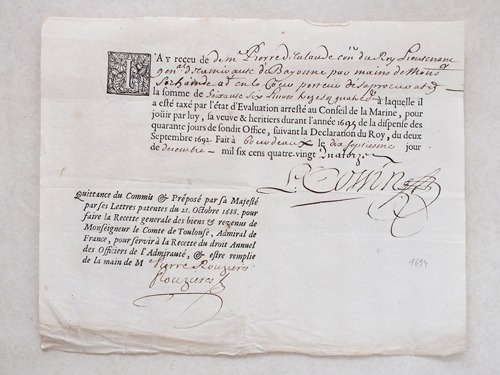 J'Ay reçeu de de mr Pierre Delalande coner du Roy Lieutenant
genal de lamirauté de Bayonne par mains de Mons
la somme de Soixante Six Livres treize à laquelle il
a esté taxé par l'état d'Evaluation arresté au Conseil de la Marine, pour
joüir par luy, sa veuve & heritiers durant l'année 1695 de la dispense des
quarante jours de sondit Office, suivant la Declaration du Roy, du deux
Septembre 1692. Fait à Bourdeaux le dix septiesme jour
de decembre mil six cens quatre-vingt quatorze
Quittance du Commis & Préposé par sa Majesté
par ses Lettres patentes du 21. Octobre 1688. pour
faire la Recette generale des biens & revenus de
Monseigneur le Comte de Toulouse, Admiral de
France, pour servir à la Recette du droit Annuel
des Officiers de l'Admirauté, & estre remplie
de la main de M Pierre Rouzier
1694